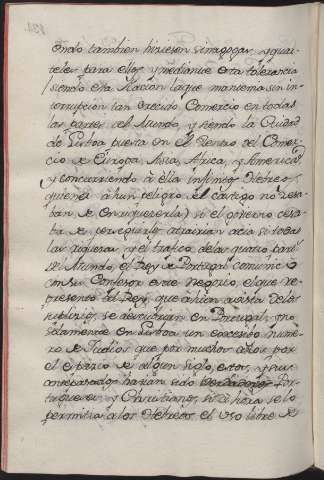 endo tambien hiciesen Sinagogas, y quar-
teles para ellos, y mediante esta tolerancia
siendo esta Nacion laque mantenia sin in-
terrupcion tan crecido Comercio en todas
las partes del Mundo, y siendo la Ciudad
de Lisboa puesta en el centro del Comer-
cio de Europa, Asia, Africa, y America,
y concurriendo à ella infinitos Hebreos,
quienes à un peligro el castigo no cesa-
ban de enriquecerla) si el govierno cesa-
ba de perseguirlos atraerian acia si todas
las riquezas, y el trafico delas quatro partes
del Mundo, el Rey de Portugal comunicò
con su Confesor este negocio, el que re-
presentò al Rey, que à vista delos
suplicios, se descubrian en Portugal, y no
solamente en Lisboa un excesivo nume-
ro de Judios que por muchos años, por
el espacio de algun siglo, estos, y sus
antepasados havian sido Portu-
gueses, y Christianos, si à hora se les
permitia à los Hebreos el uso libre de